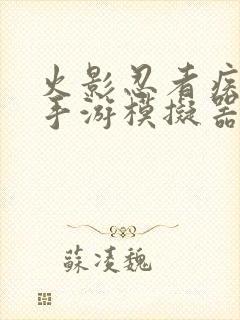 火影忍者疾
手游模擬器
蘇凌魏